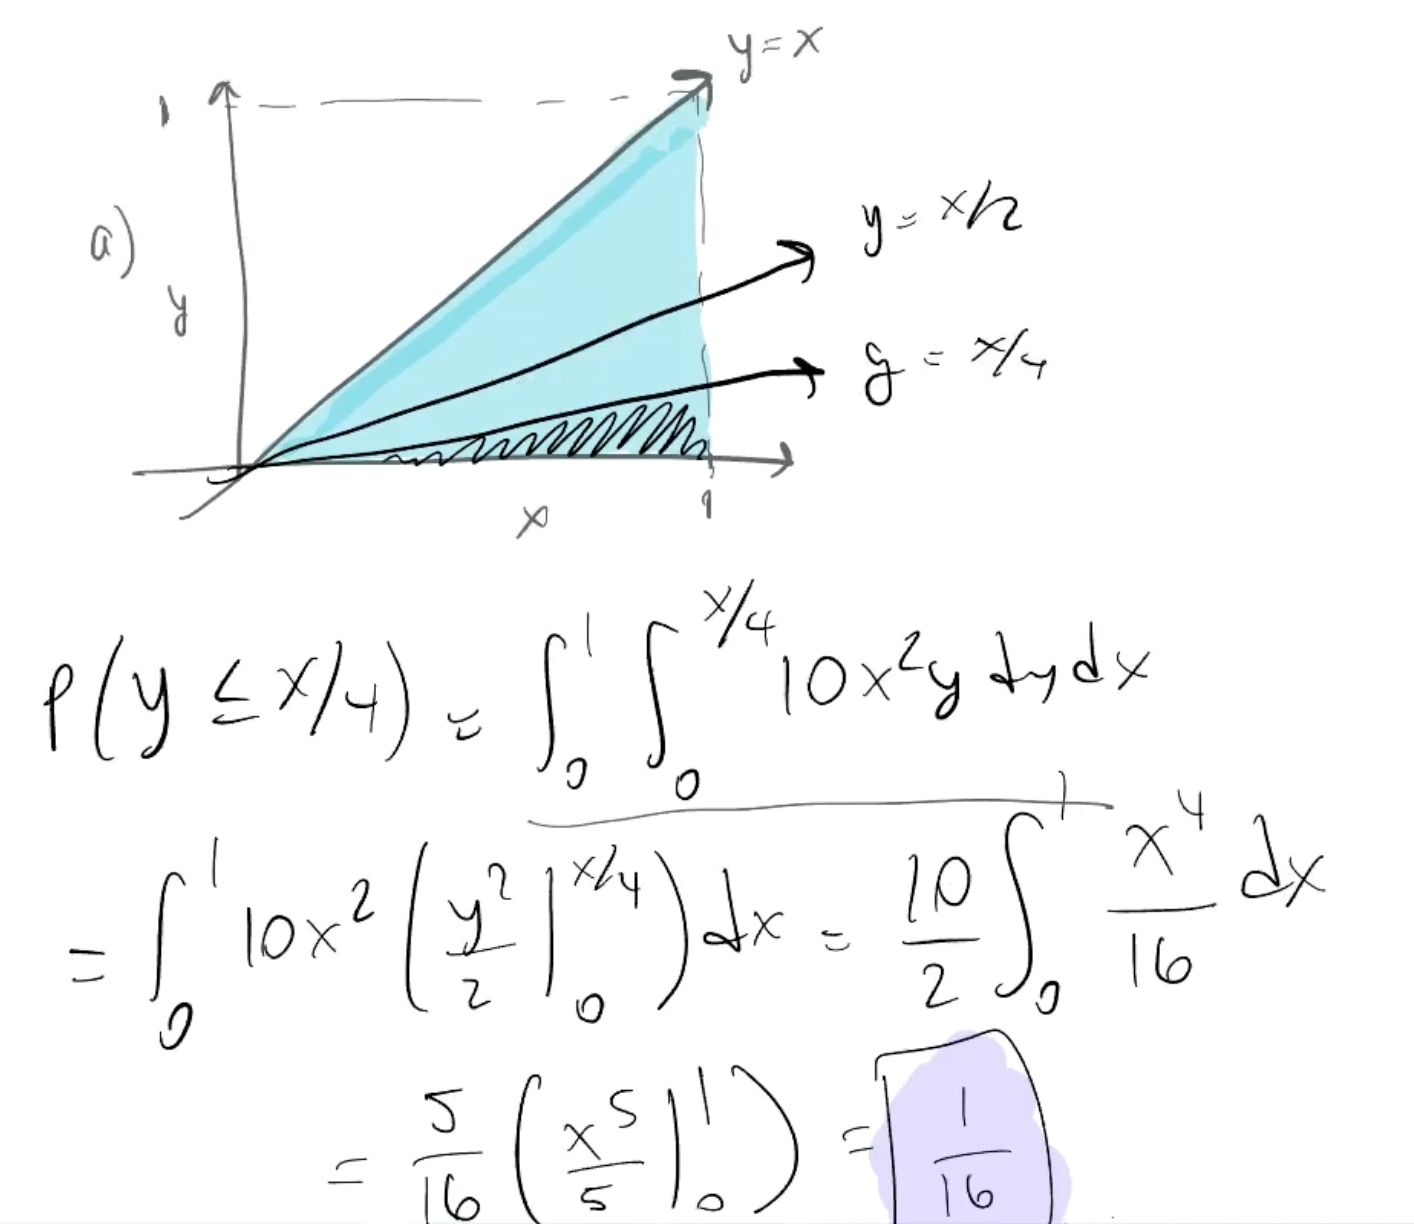 y = x
1
a)
y = x/2
y
y = x/4
x
1
P(y ≤ x/4) = ∫₀¹ ∫₀^(x/4) 10x²y dy dx
= ∫₀¹ 10x² (y²/2 |₀^(x/4)) dx = 10/2 ∫₀¹ x⁴/16 dx
= 5/16 (x⁵/5 |₀¹) = 1/16